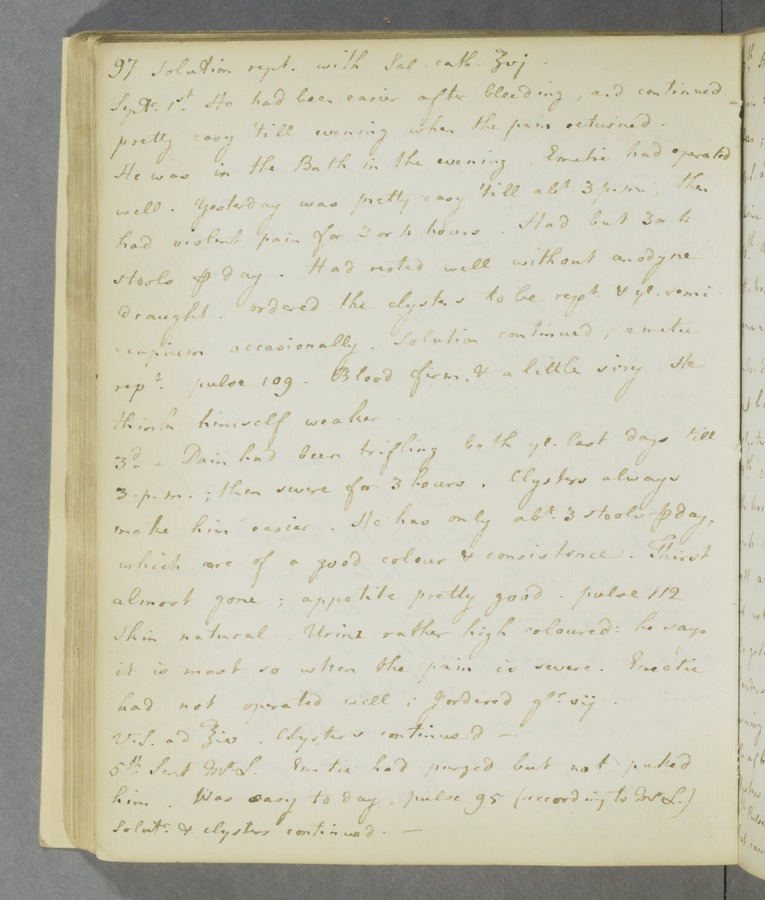 97 Solution rept. with Sal cath. ʒvj.
Septr. 1st. He had been easier after bleeding, and continued
pretty easy 'till evening when the pain returned.
He was in the Bath in the evening. Emetic had operated
well. Yesterday was pretty easy 'till abt. 3 p.m. then
had violent pain for 3 or 4 hours. Had but 3 or 4
stools ⅌ day. Had rested well without anodyne
draught. ordered the clysters to be rept. & ye. semi
occasionally. Solution continued, emetic
rept. pulse 109. Blood firm, & a little sizy. He
thinks himself weaker.
3d. - Pain had been trifling both ye. last days till
3. p.m.; then severe for 3 hours. Clysters always
make him easier. He has only abt. 3 stools ⅌ day,
which are of a good colour & consistence. Thirst
almost gone; appetite pretty good. pulse 112
Skin natural. Urine rather high coloured: he says
it is most so when the pain is severe. Emetic
had not operated well; I ordered grs. vij.
V.S. ad ℥iv. Clysters continued -
5th. Sent Mr. L. Emetic had purged but not puked
him. Was easy to day. pulse 95 (according to Mr. L.)
Solutn. & clysters continued. -